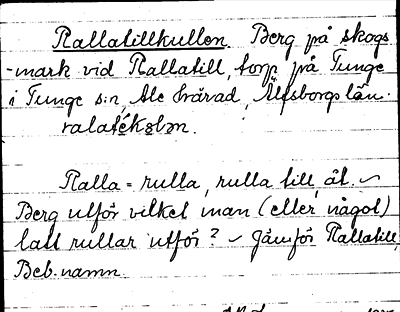 Rallatillkullen. Berg på skogs
-mark vid Rallatill, torp på Tunge
i Tunge s:n, Ale härad, Älfsborgs län.
ralatékələn.
Ralla = rulla, rulla till, åt. ~
Berg utför vilket man (eller något)
lätt rullar utför? ~ Jämför Rallatill,
Beb. namn.